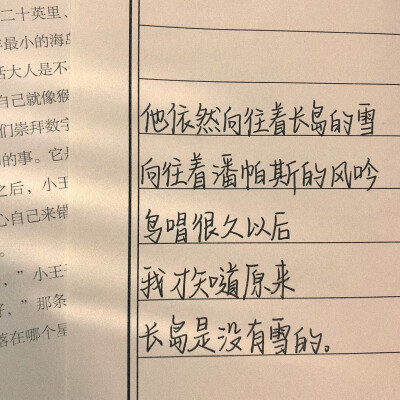 二十英里、
最小的海岛
大人是不
自己就像猴
们崇拜数字
的事。它是
之后，小王
心自己来错
。
，”小王
好，”那条
落在哪个星
他依然向往着长岛的雪
向往着潘帕斯的风吟
鸟唱很久以后
我才知道原来
长岛是没有雪的。